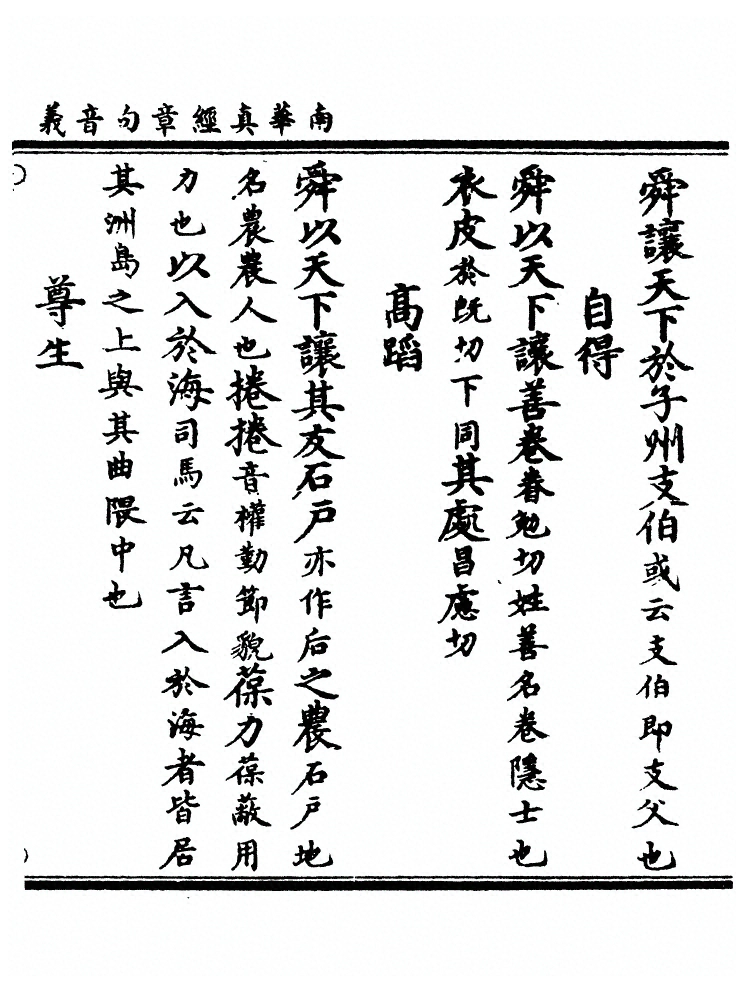 南華真經章句音義
舜讓天下於子州支伯或云支伯即支父也
自得
舜以天下讓善卷眷勉切姓善名卷隱士也
衣皮於既切下同其處昌慮切
高蹈
舜以天下讓其友石戶亦作后之農石戶地
名農農人也捲捲音權勤節貌葆力葆蔽用
力也以入於海司馬云凡言入於海者皆居
其洲島之上與其曲隈中也
尊生